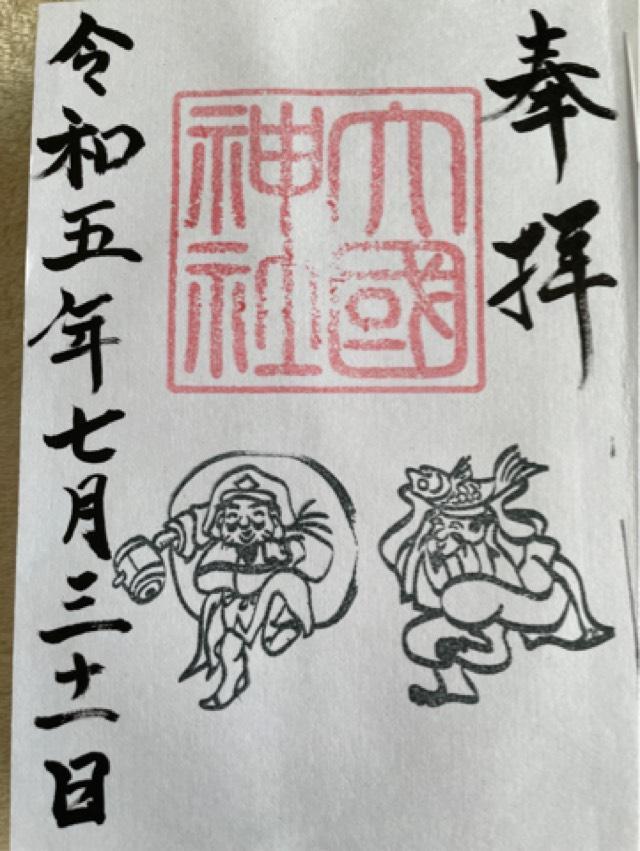 奉拝
大國
神社
令和五年七月三十一日